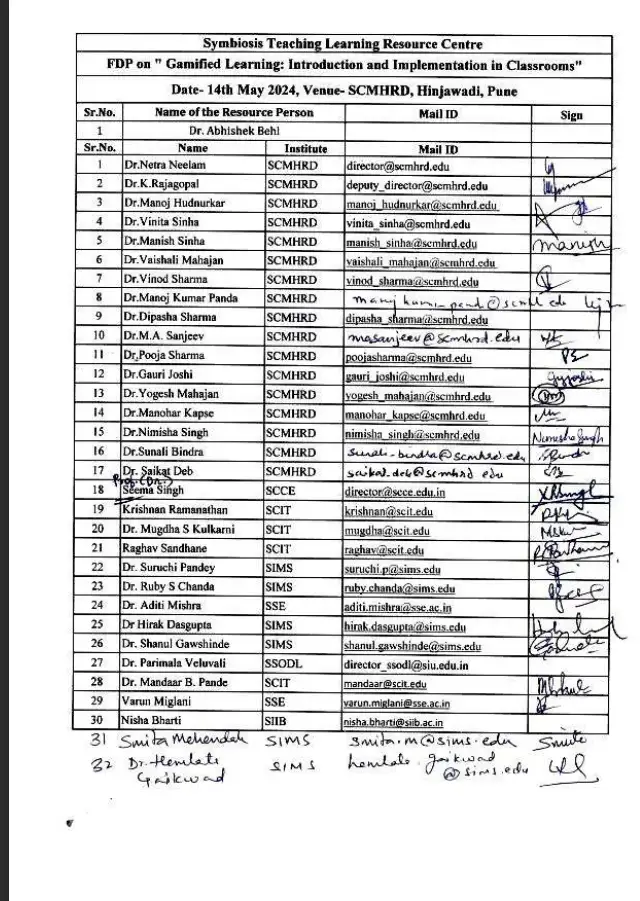 Symbiosis Teaching Learning Resource Centre
FDP on " Gamified Learning: Introduction and Implementation in Classrooms"
Date- 14th May 2024, Venue- SCMHRD, Hinjawadi, Pune
Sr.No. Name of the Resource Person Mail ID Sign
1 Dr. Abhishek Behl
Sr.No. Name Institute Mail ID
1 Dr.Netra Neelam SCMHRD director@scmhrd.edu
2 Dr.K.Rajagopal SCMHRD deputy_director@scmhrd.edu
3 Dr.Manoj Hudnurkar SCMHRD manoj_hudnurkar@scmhrd.edu
4 Dr.Vinita Sinha SCMHRD vinita_sinha@scmhrd.edu
5 Dr.Manish Sinha SCMHRD manish_sinha@scmhrd.edu Manish
6 Dr.Vaishali Mahajan SCMHRD vaishali_mahajan@scmhrd.edu
7 Dr.Vinod Sharma SCMHRD vinod_sharma@scmhrd.edu
8 Dr.Manoj Kumar Panda SCMHRD
9 Dr.Dipasha Sharma SCMHRD dipasha_sharma@scmhrd.edu
10 Dr.M.A. Sanjeev SCMHRD masanjeev@scmhrd.edu
11 Dr.Pooja Sharma SCMHRD poojasharma@scmhrd.edu PS
12 Dr.Gauri Joshi SCMHRD gauri_joshi@scmhrd.edu
13 Dr.Yogesh Mahajan SCMHRD yogesh_mahajan@scmhrd.edu
14 Dr.Manohar Kapse SCMHRD manohar_kapse@scmhrd.edu
15 Dr.Nimisha Singh SCMHRD nimisha_singh@scmhrd.edu Nimisha Singh
16 Dr.Sunali Bindra SCMHRD sunali_bindra@scmhrd.edu
17 Dr. Saikat Deb SCMHRD saikat_deb@scmhrd edu
Prof.(Dr.)
18 Seema Singh SCCE director@scce.edu.in
19 Krishnan Ramanathan SCIT krishnan@scit.edu
20 Dr. Mugdha S Kulkarni SCIT mugdha@scit.edu
21 Raghav Sandhane SCIT raghav@scit.edu
22 Dr. Suruchi Pandey SIMS suruchi.p@sims.edu
23 Dr. Ruby S Chanda SIMS ruby.chanda@sims.edu
24 Dr. Aditi Mishra SSE aditi.mishra@sse.ac.in
25 Dr Hirak Dasgupta SIMS hirak.dasgupta@sims.edu
26 Dr. Shanul Gawshinde SIMS shanul.gawshinde@sims.edu
27 Dr. Parimala Veluvali SSODL director_ssodl@siu.edu.in
28 Dr. Mandaar B. Pande SCIT mandaar@scit.edu
29 Varun Miglani SSE varun.miglani@sse.ac.in
30 Nisha Bharti SIIB nisha.bharti@siib.ac.in
31 Smita Mehendale SIMS smita.m@sims.edu Smita
32 Dr. Hemlata SIMS hemlata.gaikwad
Gaikwad @sims.edu